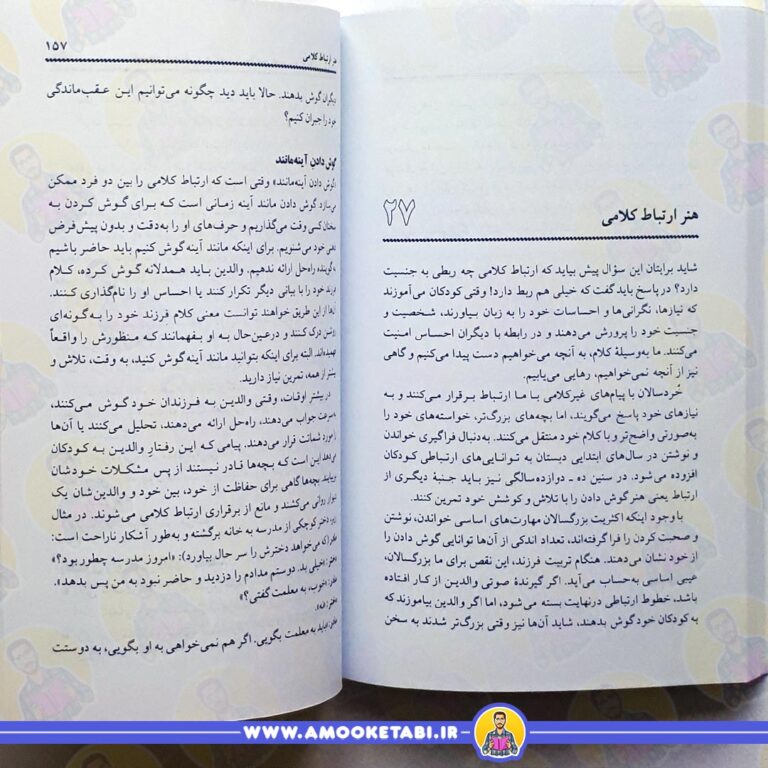 ۲۷
هنر ارتباط کلامی
شاید برایتان این سؤال پیش بیاید که ارتباط کلامی چه ربطی به جنسیت
دارد؟ در پاسخ باید گفت که خیلی هم ربط دارد! وقتی کودکان می‌آموزند
که نیازها، نگرانی‌ها و احساسات خود را به زبان بیاورند، شخصیت و
جنسیت خود را پرورش می‌دهند و در رابطه با دیگران احساس امنیت
می‌کنند. ما به‌وسیلهٔ کلام، به آنچه می‌خواهیم دست پیدا می‌کنیم و گاهی
نیز از آنچه نمی‌خواهیم، رهایی می‌یابیم.
خُردسالان با پیام‌های غیرکلامی با ما ارتباط برقرار می‌کنند و به
نیازهای خود پاسخ می‌گویند، اما بچه‌های بزرگ‌تر، خواسته‌های خود را
به‌صورتی واضح‌تر و با کلام خود منتقل می‌کنند. به‌دنبال فراگیری خواندن
و نوشتن در سال‌های ابتدایی دبستان به توانایی‌های ارتباطی کودکان
افزوده می‌شود. در سنین ده ـ دوازده‌سالگی نیز باید جنبهٔ دیگری از
ارتباط یعنی هنر گوش دادن را با تلاش و کوشش خود تمرین کنند.
با وجود اینکه اکثریت بزرگسالان مهارت‌های اساسی خواندن، نوشتن
و صحبت کردن را فراگرفته‌اند، تعداد اندکی از آن‌ها توانایی گوش دادن را
از خود نشان می‌دهند. هنگام تربیت فرزند، این نقص برای ما بزرگسالان،
عیبی اساسی به‌حساب می‌آید. اگر گیرندهٔ صوتی والدین از کار افتاده
باشد، خطوط ارتباطی درنهایت بسته می‌شود، اما اگر والدین بیاموزند که
به کودکان خود گوش بدهند، شاید آن‌ها نیز وقتی بزرگ‌تر شدند به سخن
هنر ارتباط کلامی ۱۵۷
دیگران گوش بدهند. حالا باید دید چگونه می‌توانیم این عقب‌ماندگی
خود را جبران کنیم؟
گوش دادن آینه‌مانند
«گوش دادن آینه‌مانند» وقتی است که ارتباط کلامی را بین دو فرد ممکن
می‌سازد. گوش دادن مانند آینه زمانی است که برای گوش کردن به
سخنان کسی وقت می‌گذاریم و حرف‌های او را به‌دقت و بدون پیش‌فرض
ذهنی خود می‌شنویم. برای اینکه مانند آینه گوش کنیم باید حاضر باشیم
به گوینده راه‌حل ارائه ندهیم. والدین باید همدلانه گوش کرده، کلام
فرزند خود را با بیانی دیگر تکرار کنند یا احساس او را نام‌گذاری کنند.
آن‌ها از این طریق خواهند توانست معنی کلام فرزند خود را به‌گونه‌ای
روشن درک کنند و درعین‌حال به او بفهمانند که منظورش را واقعاً
فهمیده‌اند. البته برای اینکه بتوانید مانند آینه گوش کنید، به وقت، تلاش و
بیشتر از همه، تمرین نیاز دارید.
در بیشتر اوقات، وقتی والدین به فرزندان خود گوش می‌کنند،
به‌سرعت جواب می‌دهند، راه‌حل ارائه می‌دهند، تحلیل می‌کنند یا آن‌ها
را مورد شماتت قرار می‌دهند. پیامی که این رفتارِ والدین به کودکان
می‌دهد این است که بچه‌ها قادر نیستند از پس مشکلات خودشان
بربیایند. بچه‌ها گاهی برای حفاظت از خود، بین خود و والدین‌شان یک
دیوار روانی می‌کشند و مانع از برقراری ارتباط کلامی می‌شوند. در مثال
زیر، دختر کوچکی از مدرسه به خانه برگشته و به‌طور آشکار ناراحت است:
مادر (که می‌خواهد دخترش را سر حال بیاورد): «امروز مدرسه چطور بود؟»
دختر: «خیلی بد. دوستم مدادم را دزدید و حاضر نبود به من پس بدهد».
مادر: «خوب، به معلمت گفتی؟»
دختر: «نه».
مادر: «باید به معلمت بگویی. اگر هم نمی‌خواهی به او بگویی، به دوستت
WWW.AMOOKETABI.IR